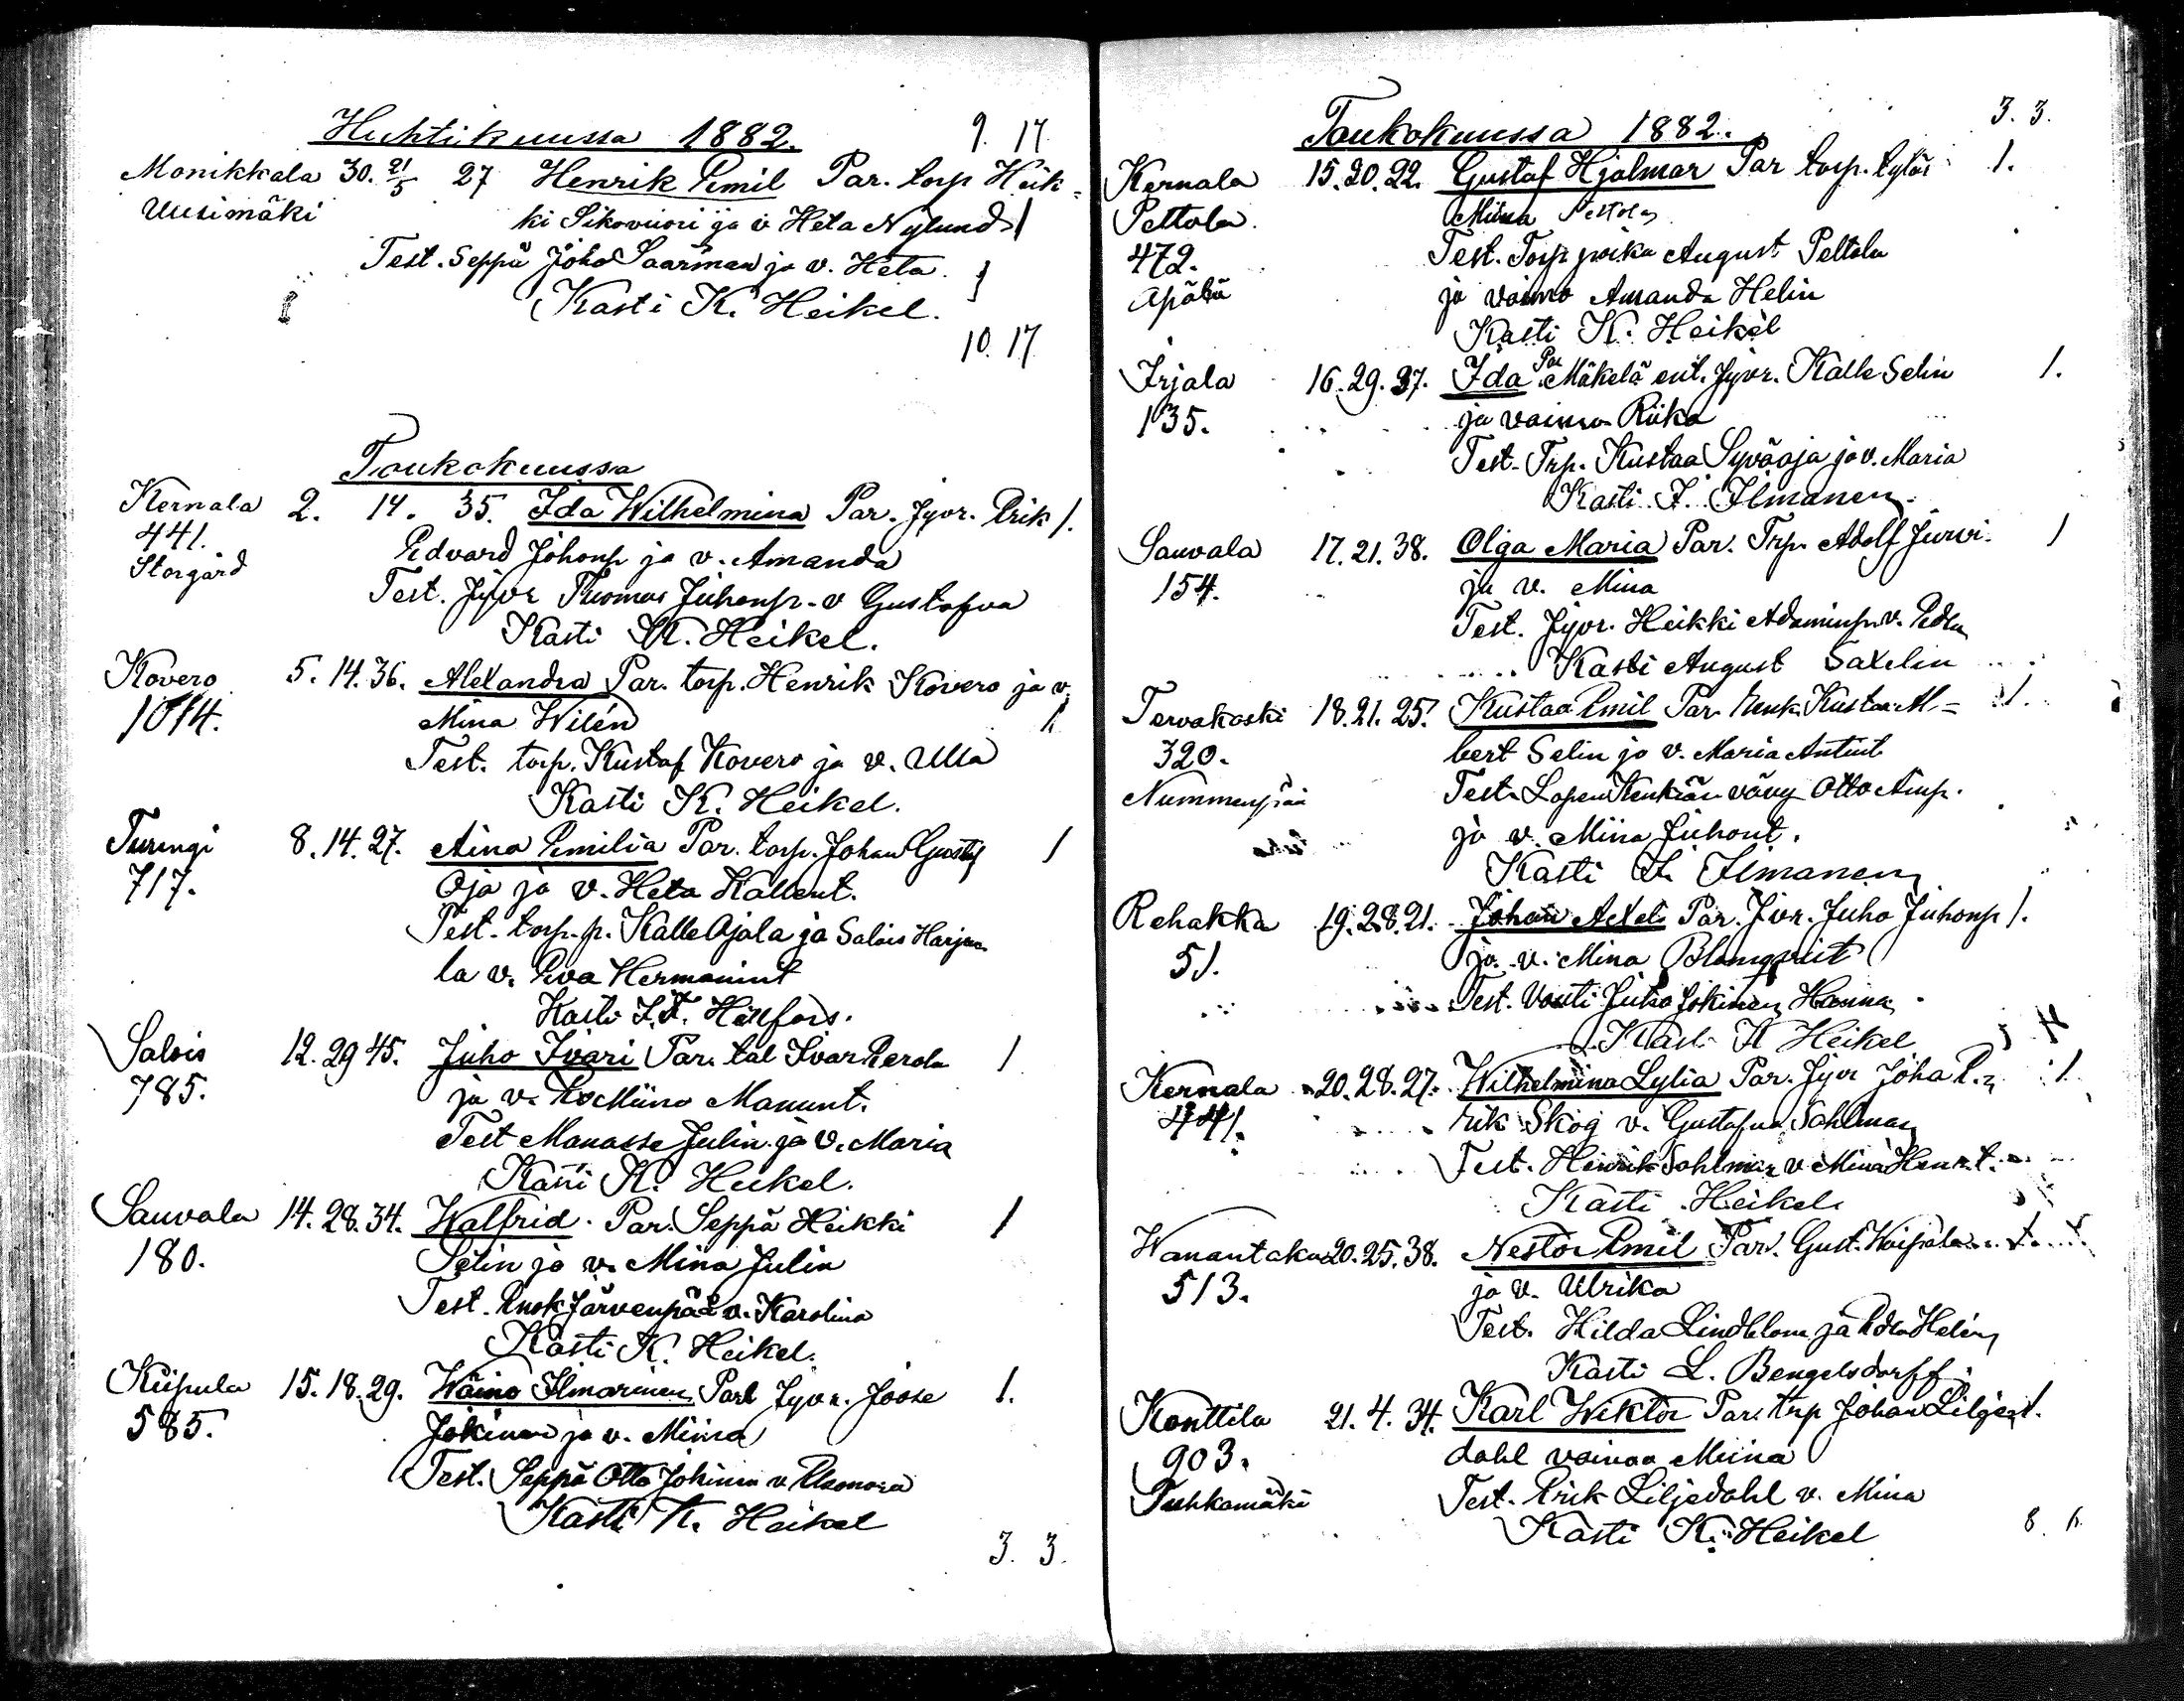 Huhtikuussa 1882. 9. 17
Monikkala 30. 21/5 27 Henrik Emil Par. torp Heik-
Uusimäki ki Sikovuori ja v Heta Nylund 1
Test. Seppä Joho Saarman ja v. Heta.
Kasti K. Heikel.
10. 17
Toukokuussa
Kernala 2. 14. 35. Ida Wilhelmina Par. Jyvr. Erik 1.
441. Edvard Johonp ja v. Amanda
Storgård Test. Jyvr Thomas Juhonp. v Gustafva
Kasti K. Heikel.
Kovero 5. 14. 36. Alexandra Par. torp. Henrik Kovero ja v.
1014. Mina Wilén 1
Test. torp. Kustaf Kovero ja v. Ulla
Kasti K. Heikel.
Turengi 8. 14. 27. Aina Emilia Par. torp. Johan Gustaf 1
717. Oja ja v. Heta Kallent.
Test. torp. p. Kalle Ojala ja Salois Harju
la v. Eva Hermanint
Kasti Hellfors.
Salois 12. 29 45. Juho Ivari Par. tal Ivar Perola 1
785. ja v. Miina Manunt.
Test Manasse Julin ja v. Maria
Kasti K. Heikel.
Sauvala 14. 28. 34. Walfrid. Par. Seppä Heikki 1
180. Selin ja v. Mina Julin
Test. Ruok Järvenpää v. Karolina
Kasti K. Heikel.
Kiipula 15. 18. 29. Wäino Ilmarinen Par Jyvr. Joose 1.
585. Jokinen ja v. Miina
Test. Seppä Otto Jokinen v. Eleonora
Kasti K. Heikel
3. 3.
Toukokuussa 1882. 3. 3.
Kernala 15. 20. 22. Gustaf Hjalmar Par torp. tytär 1.
Peltola. Miina Peltola
472. Test. Torp poika August Peltola
Apärä ja vaimo Amanda Helin
Kasti K. Heikel
Irjala 16. 29. 37. Ida Par Mäkelä ent. Jyvr. Kalle Selin 1.
135. ja vaimo Riika
Test. Trp. Kustaa Syväoja ja v. Maria
Kasti I. Ilmanen.
Sauvala 17. 21. 38. Olga Maria Par. Trp. Adolf Jurvi. 1
154. ja v. Mina
Test. Jyvr. Heikki Adaminp. v. Edla
Kasti August Saxelin
Tervakoski 18. 21. 25. Kustaa Emil Par. Kustaa Al- 1.
320. bert Selin ja v. Maria Antint
Nummenpää Test. Lopen vävy Otto
ja v. Miina Juhont.
Kasti I. Ilmanen
Rehakka 19. 28. 21. Johan Axel Par. Jvr. Juho Juhonp 1.
51. ja v. Mina Blomqvist
Test. Vouti Juho Jokinen Hanna
Kasti K Heikel
Kernala 20. 28. 27. Wilhelmina Lylia Par. Jyvr Joha E- 1.
441. rik Skog v. Gustafva Sahlman
Test. Henrik Sahlman v Mina Henr.t.
Kasti Heikel
Wanantaka 20. 25. 38. Nestor Emil Par. Gust. Waipala
513. ja v. Ulrika
Test. Hilda Lindblom ja Edla Helén
Kasti L. Bengelsdorff
Konttila 21. 4. 34. Karl Wiktor Par. trp Johan Lilje- 1.
903. dahl vaimo Miina
Tuhkamäki Test. Erik Liljedahl v. Mina
Kasti K. Heikel 8. 6.